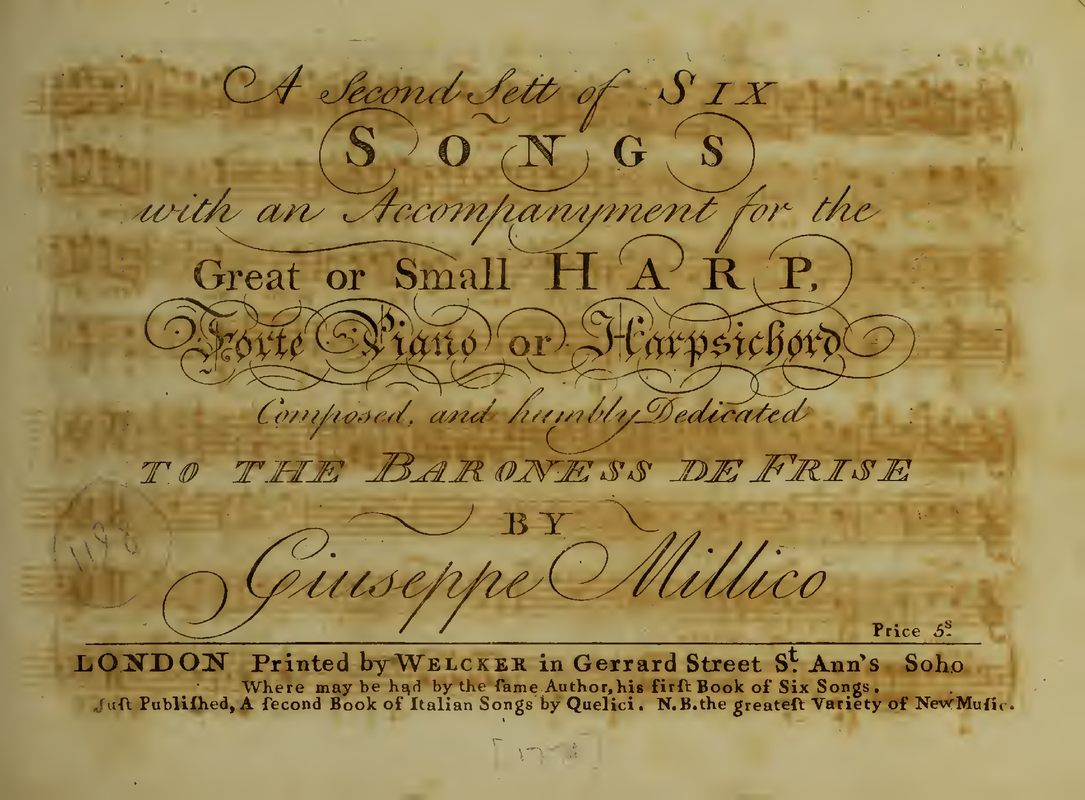 A Second Sett of SIX
SONGS
with an Accompanyment for the
Great or Small HARP,
Forte Piano or Harpsichord
Composed, and humbly Dedicated
TO THE BARONESS DE FRISE
BY
Giuseppe Millico
Price 5s.
LONDON Printed by WELCKER in Gerrard Street St. Ann's Soho
Where may be had by the ſame Author, his firſt Book of Six Songs.
Juſt Publiſhed, A ſecond Book of Italian Songs by Quelici. N.B. the greateſt Variety of New Muſic.
1198